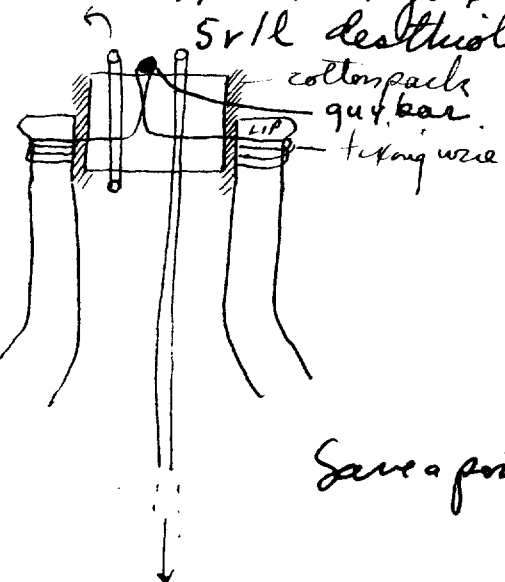 5r/l desthiol
cotton pack
guy bar
LIP
fixing wire
Save a